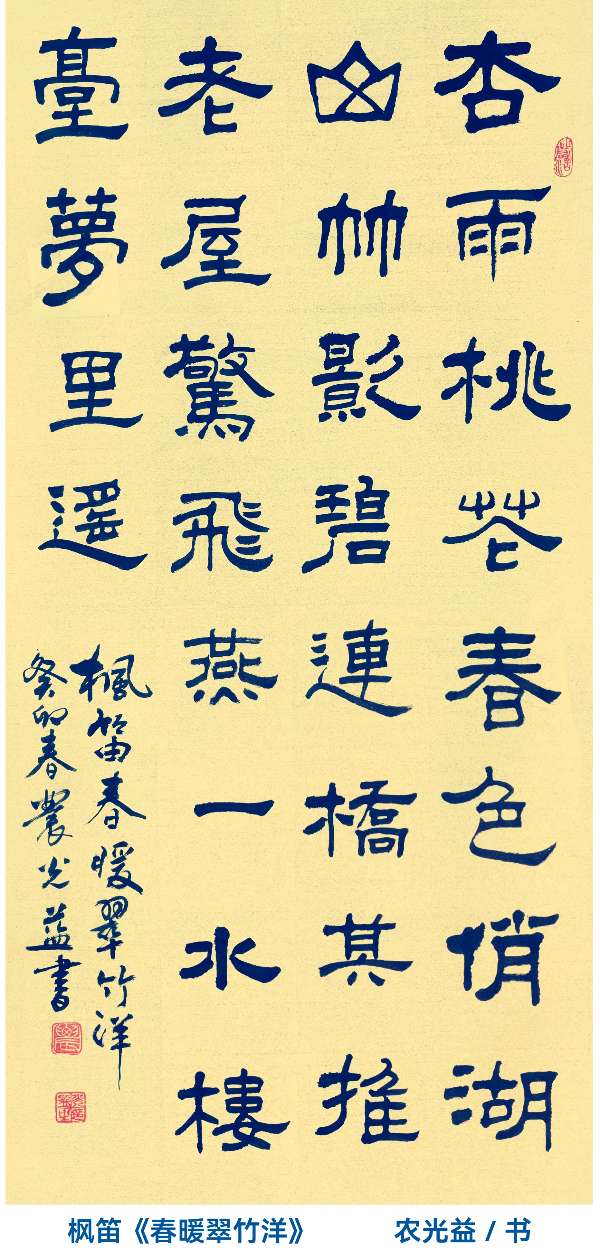 杏雨桃花春色俏湖
山竹影碧連橋其推
老屋驚飛燕一水樓
臺夢里遥
楓笛春暖翠竹洋
癸卯春農光益書
枫笛《春暖翠竹洋》 农光益 / 书